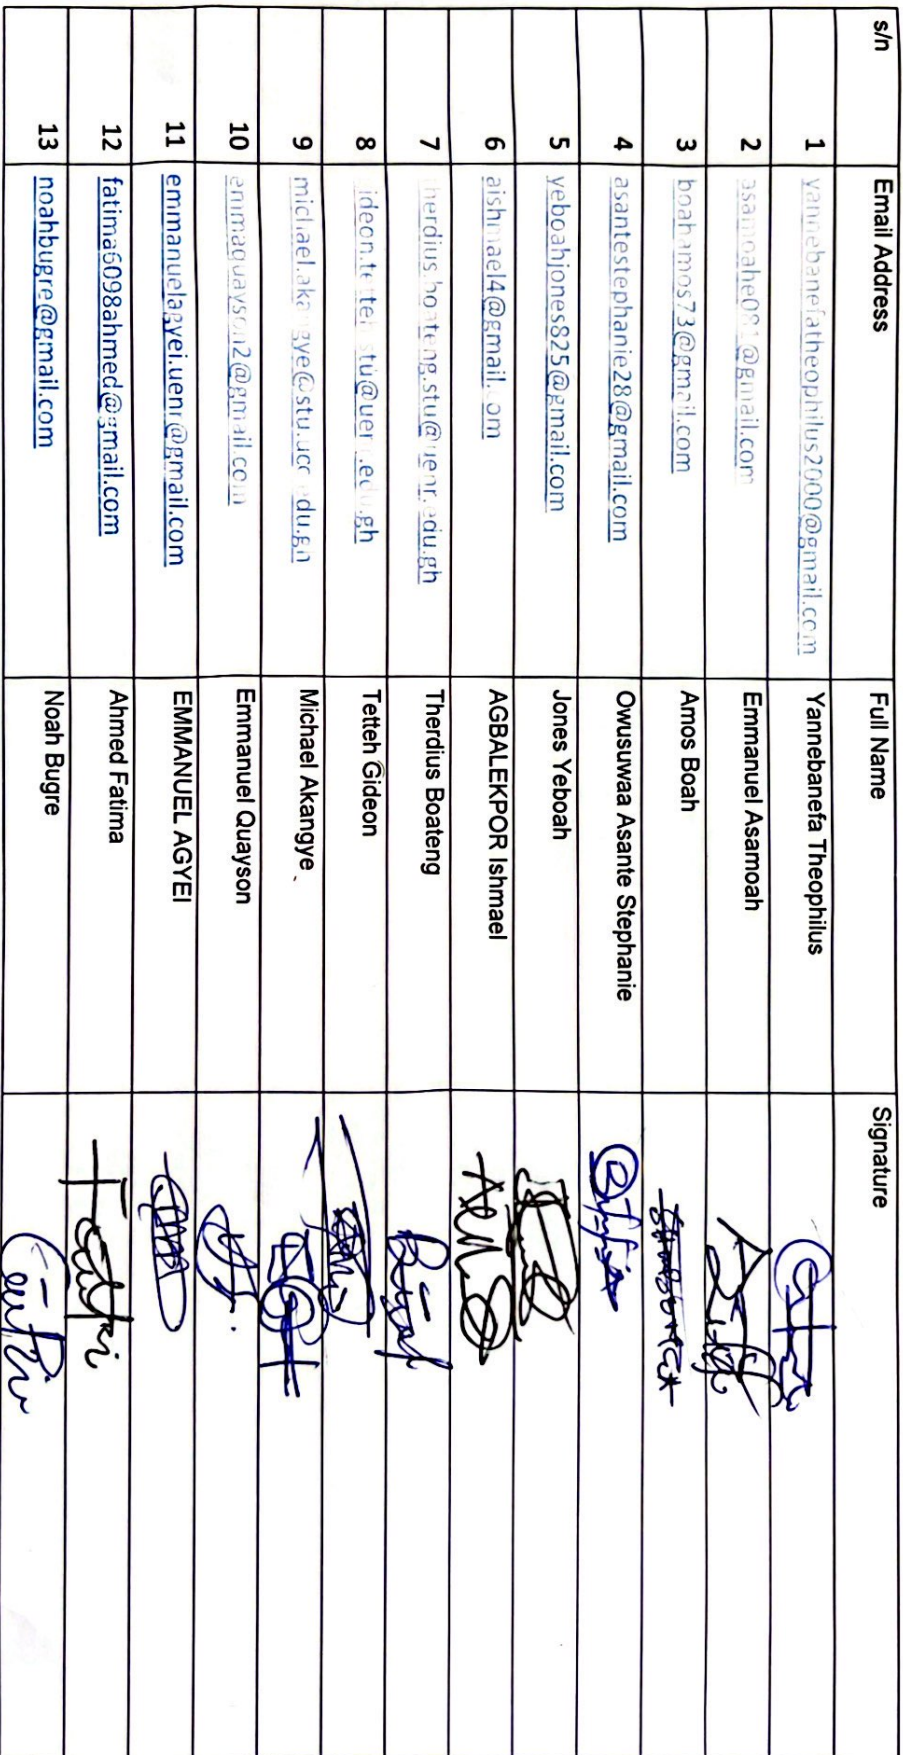 s/n Email Address Full Name Signature
1 yannebanefatheophilus2000@gmail.com Yannebanefa Theophilus
2 asamoahe081@gmail.com Emmanuel Asamoah
3 boahamos73@gmail.com Amos Boah
4 asantestephanie28@gmail.com Owusuwaa Asante Stephanie
5 yeboahjones825@gmail.com Jones Yeboah
6 aishmael4@gmail.com AGBALEKPOR Ishmael
7 therdius.boateng.stu@uenr.edu.gh Therdius Boateng
8 Tetteh Gideon
9 michael.akangye@stu.ucc.edu.gh Michael Akangye
10 emmaquayson2@gmail.com Emmanuel Quayson
11 emmanuelagyei.uenr@gmail.com EMMANUEL AGYEI
12 fatima6098ahmed@gmail.com Ahmed Fatima
13 noahbugre@gmail.com Noah Bugre